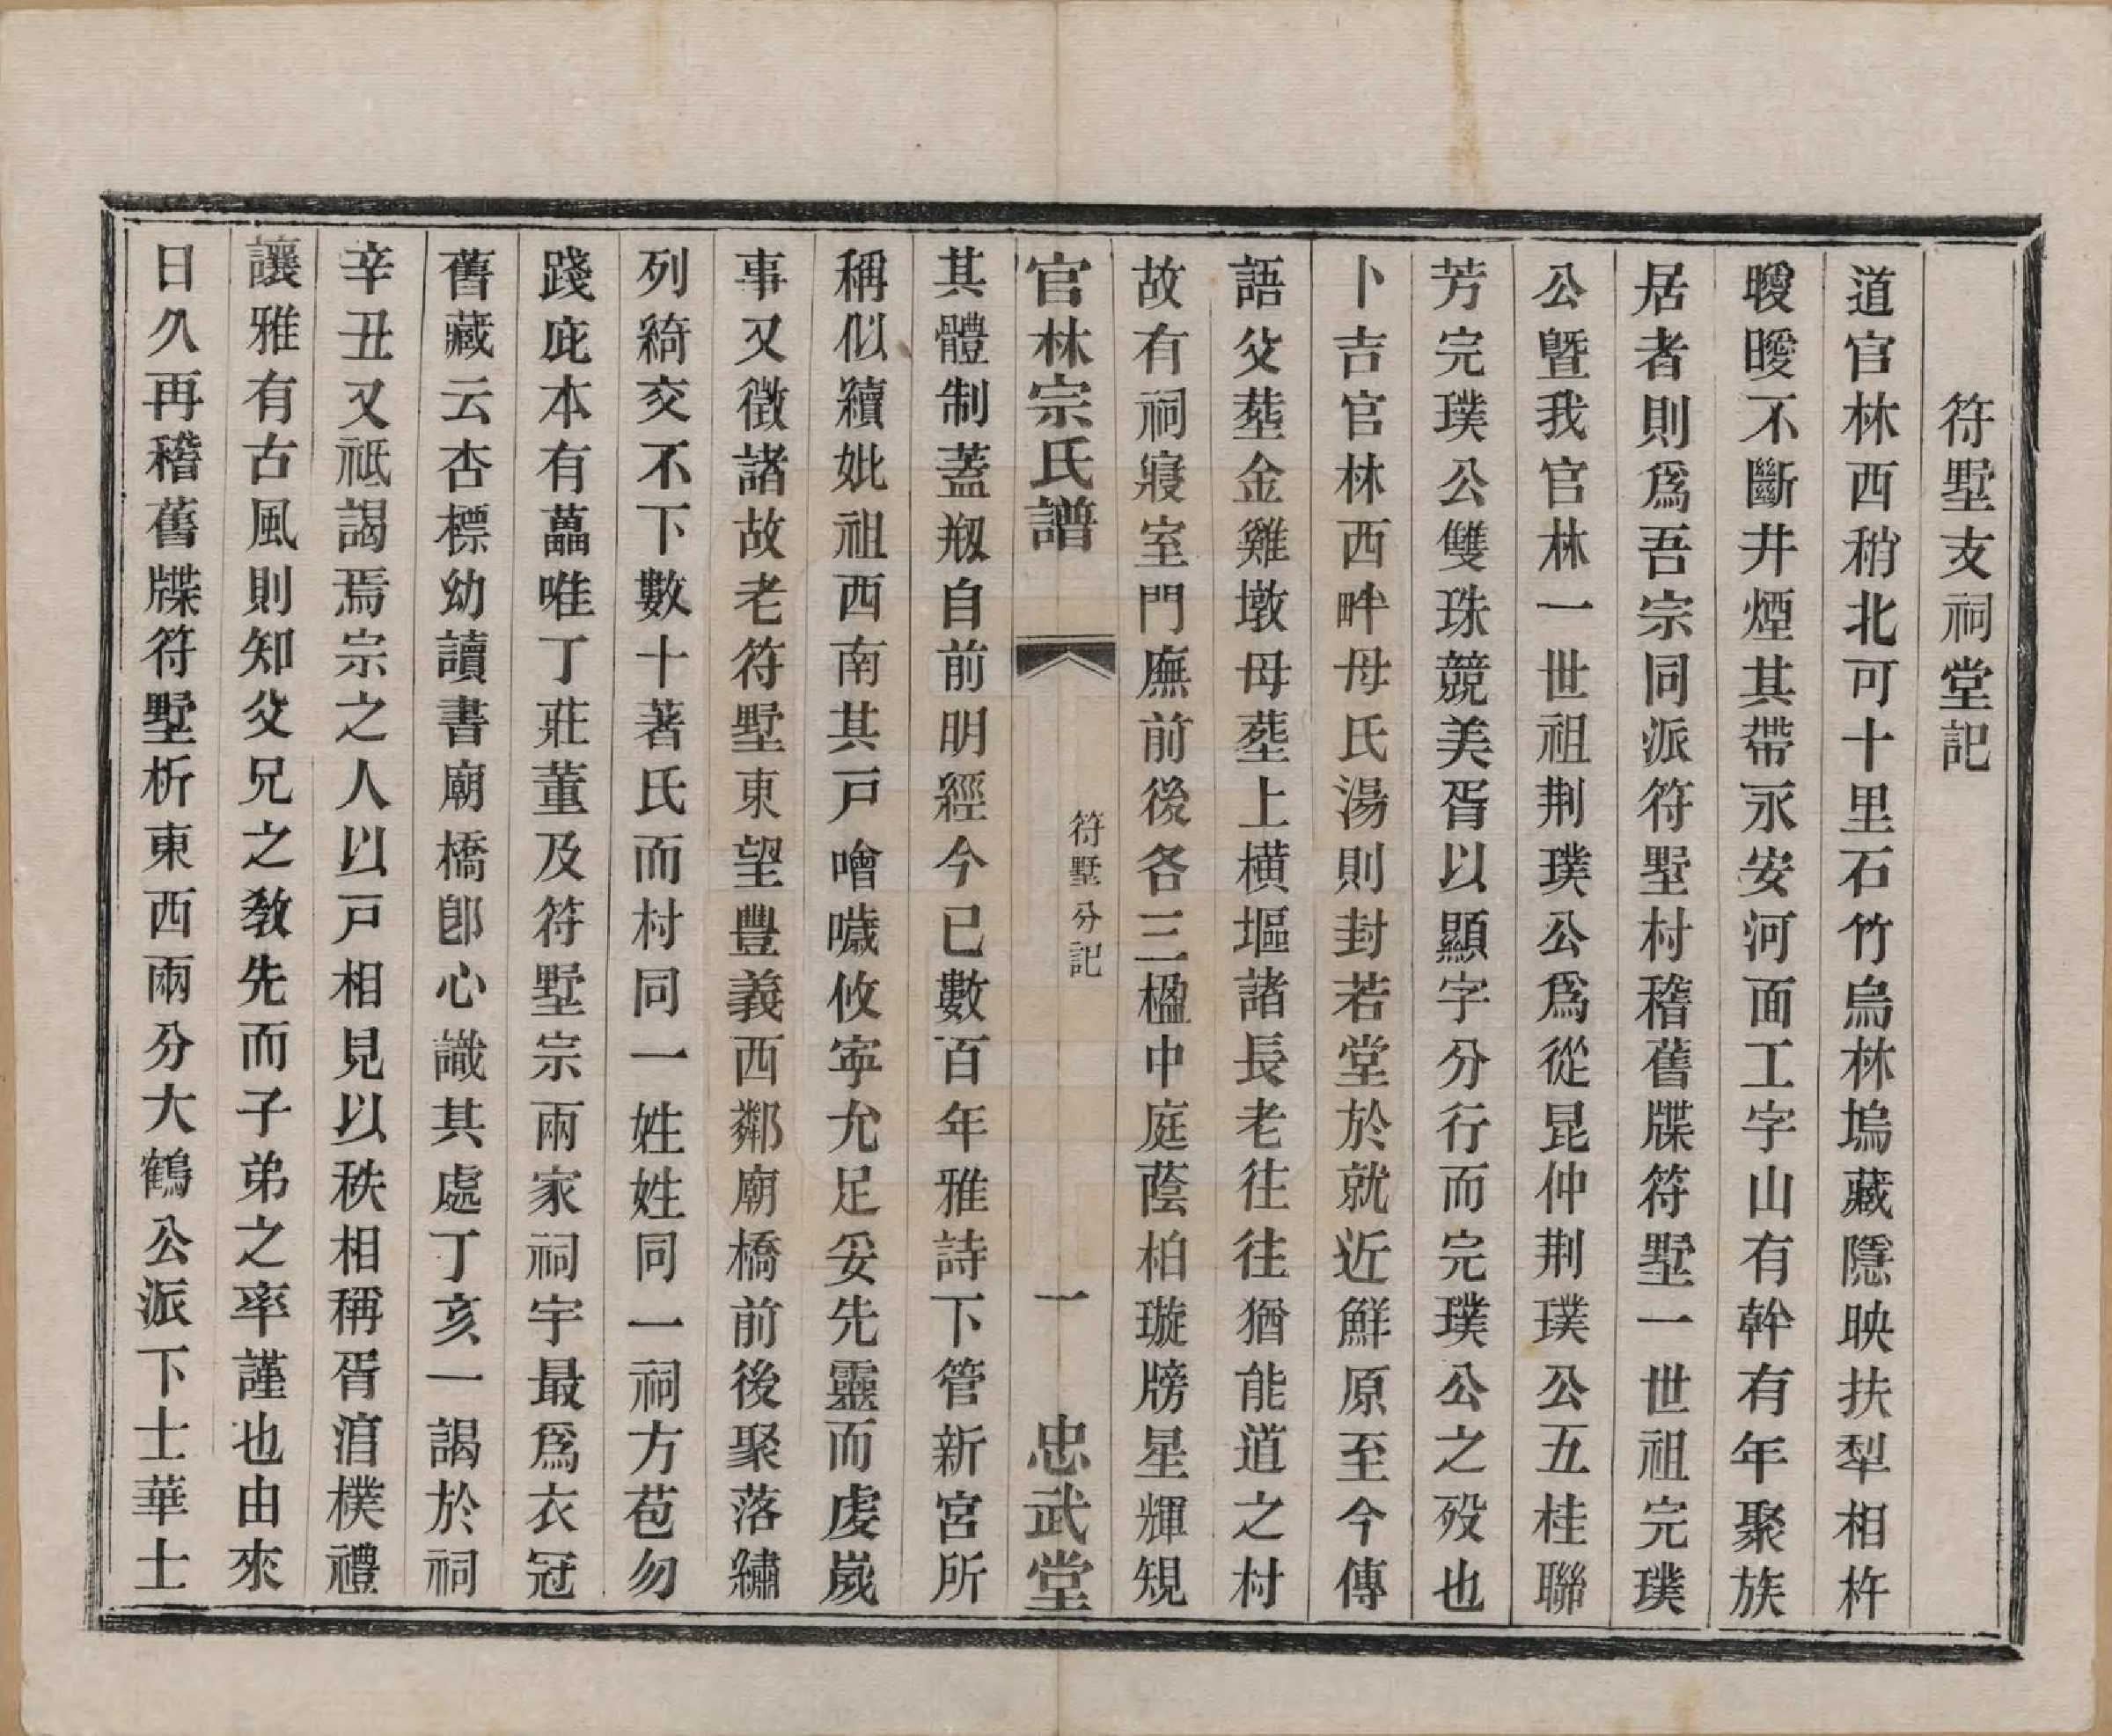 符墅支祠堂記
道官林西稍北可十里石竹烏林塢藏隱映扶犁相杵
曖曖不斷井煙其帶永安河面工字山有幹有年聚族
居者則爲吾宗同派符墅村稽舊牒符墅一世祖完璞
公曁我官林一世祖荆璞公爲從昆仲荆璞公五桂聯
芳完璞公雙珠競美胥以顯字分行而完璞公之歿也
卜吉官林西畔母氏湯則封若堂於就近鮮原至今傳
語父塟金雞墩母塟上橫堰諸長老往往猶能道之村
故有祠寢室門廡前後各三楹中庭蔭柏璇牓星輝規
官林宗氏譜
符墅分記
一
忠武堂
其體制蓋剏自前明經今已數百年雅詩下管新宮所
稱似續妣祖西南其戸噲噦攸寧允足妥先靈而虔嵗
事又徵諸故老符墅東望豐義西鄰廟橋前後聚落繡
列綺交不下數十著氏而村同一姓姓同一祠方苞勿
踐庇本有藟唯丁莊董及符墅宗兩家祠宇最爲衣冠
舊藏云杏標幼讀書廟橋卽心識其處丁亥一謁於祠
辛丑又祗謁焉宗之人以戸相見以秩相稱胥淯樸禮
讓雅有古風則知父兄之敎先而子弟之率謹也由來
日久再稽舊牒符墅析東西兩分大鶴公派下士華士